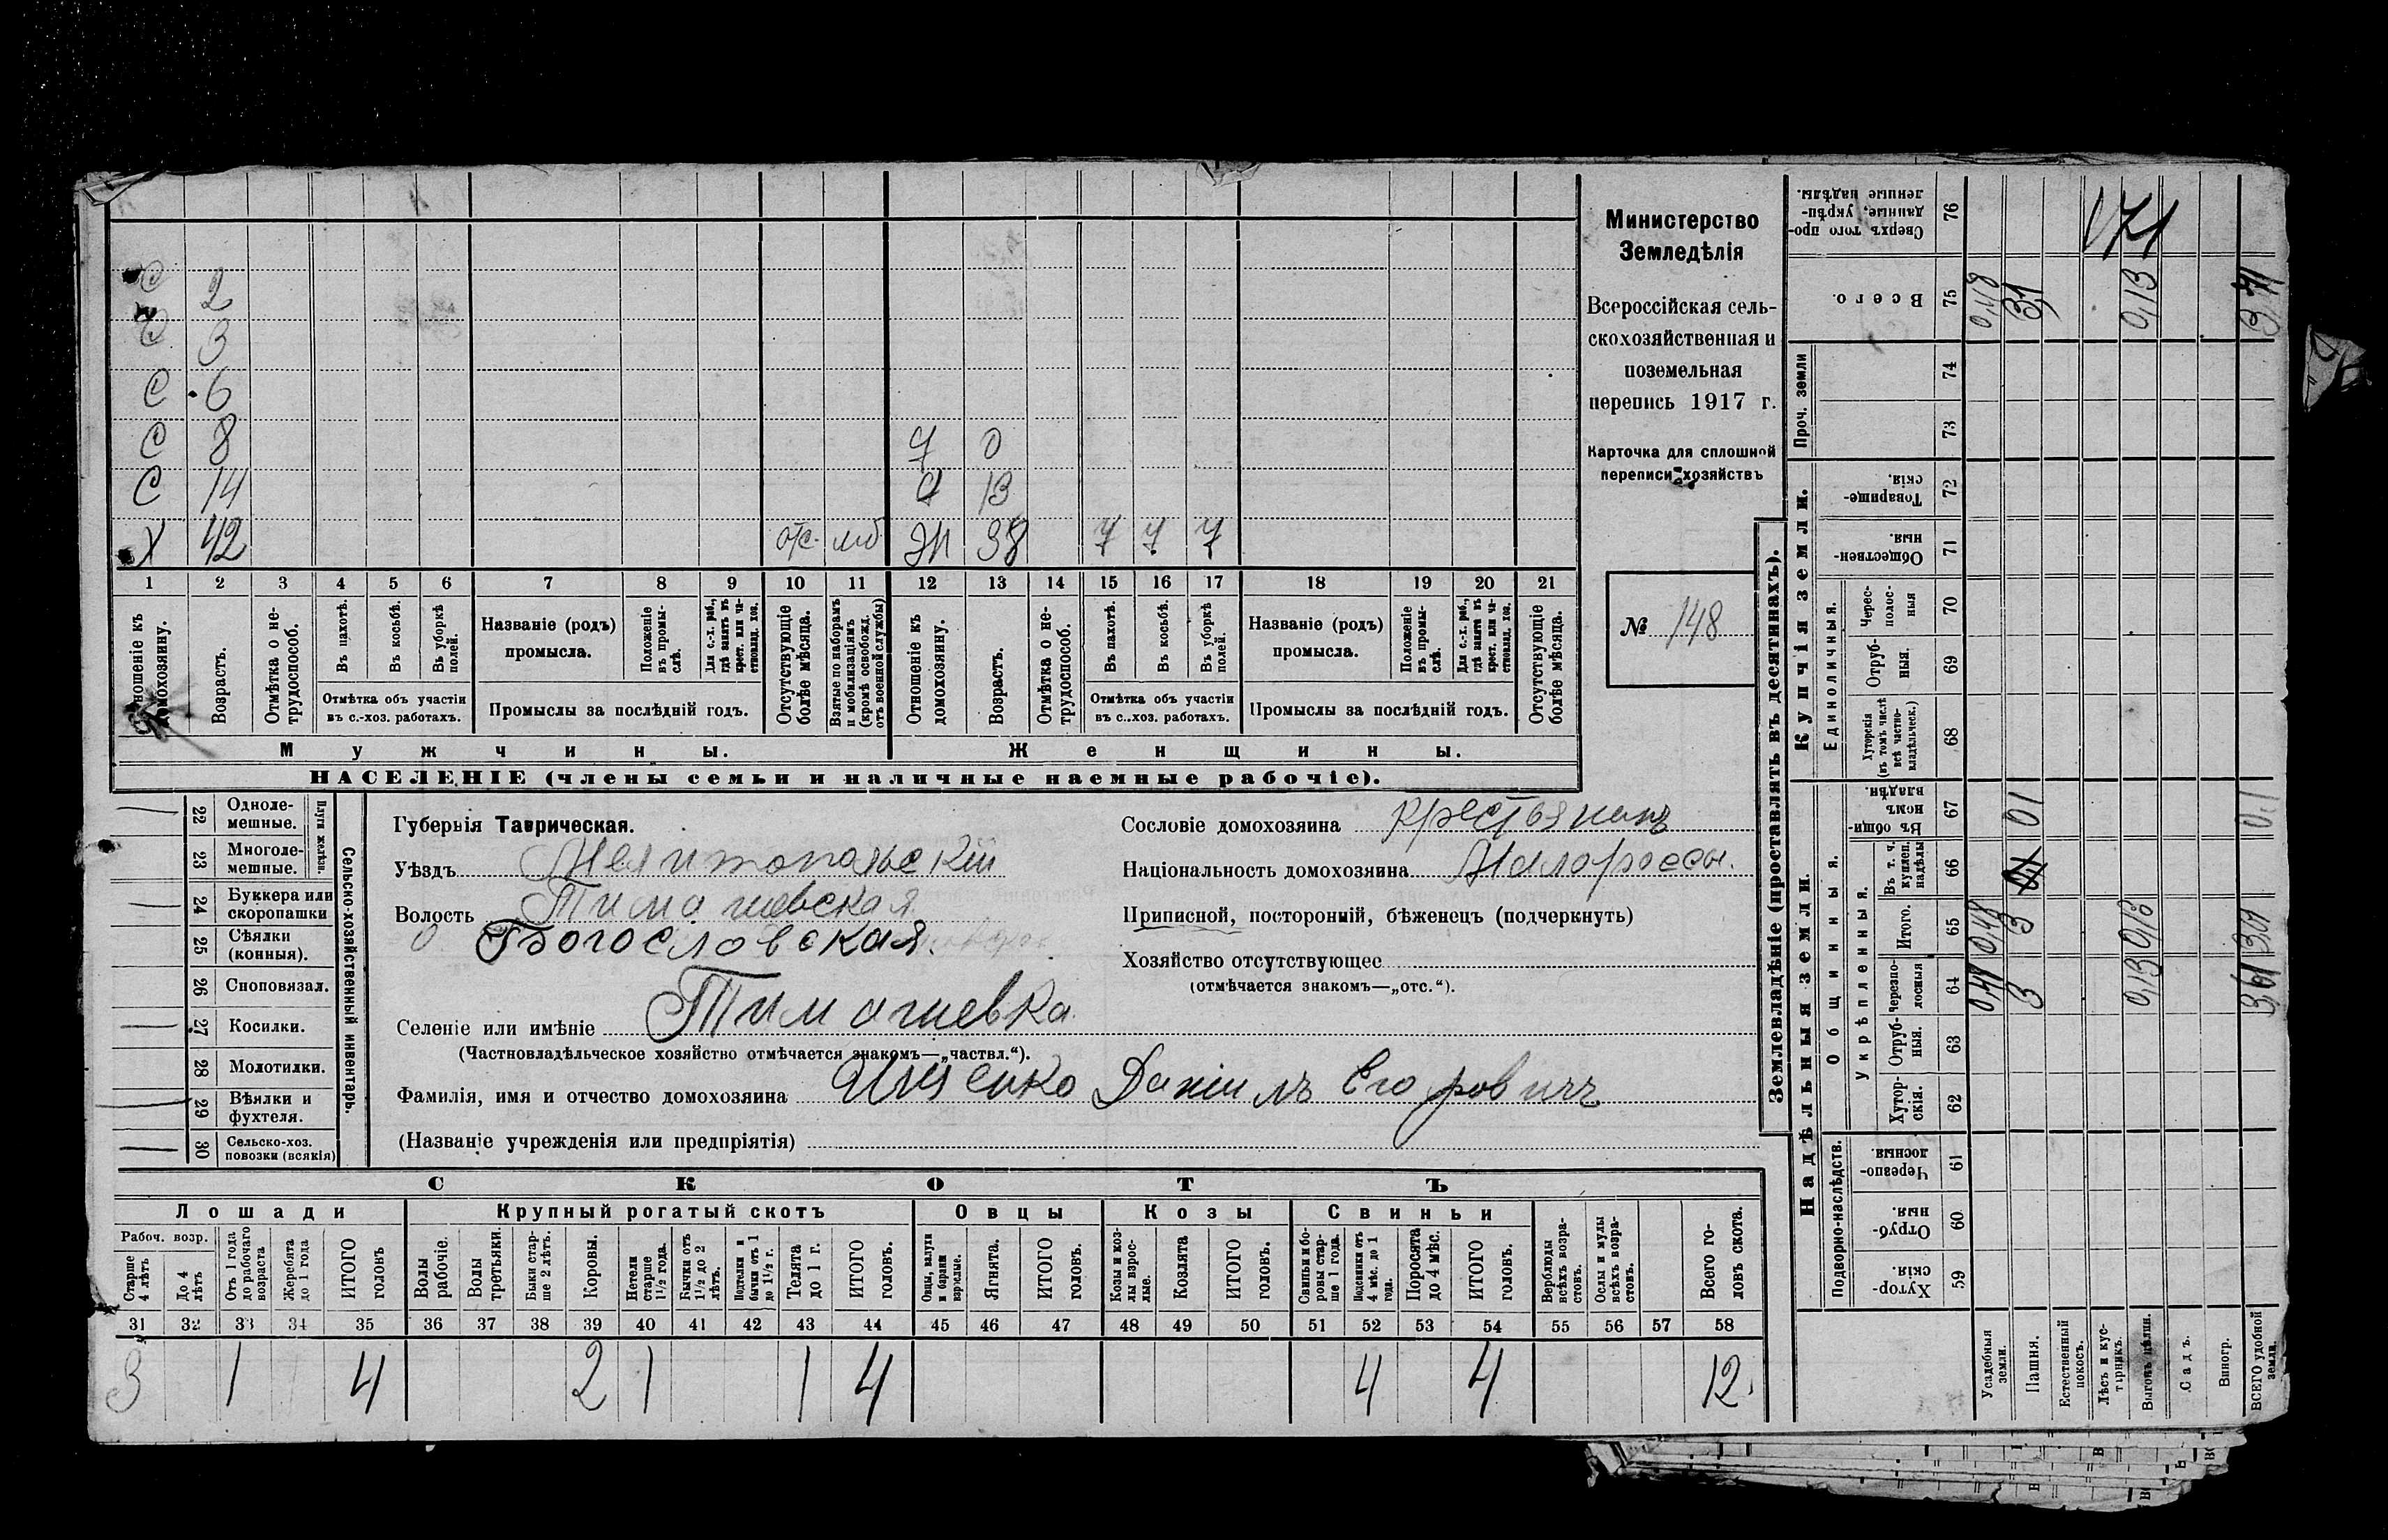 С 2
С 3
С 6
С 8 Д 0
С 14 Д 13
Х 42 отс. моб ЖН 38 7 7 7
1 2 3 4 5 6 7 8 9 10 11 12 13 14 15 16 17 18 19 20 21
Отношеніе къ домохозяину.
Возрастъ.
Отмѣтка о не-
трудоспособ.
Въ пахотѣ.
Въ косьбѣ.
Въ уборкѣ
полей.
Отмѣтка объ участіи
въ с.-хоз. работахъ.
Названіе (родъ)
промысла.
Положеніе
въ промы-
слѣ.
Для с.-х. раб.,
гдѣ занятъ въ
крест. или ча-
стновлад. хоз.
Промыслы за послѣдній годъ.
Отсутствующіе
болѣе мѣсяца.
Взятые по наборамъ
и мобилизаціямъ
(кромѣ освобожд.
отъ военной службы)
Отношеніе къ
домохозяину.
Возрастъ.
Отмѣтка о не-
трудоспособ.
Въ пахотѣ.
Въ косьбѣ.
Въ уборкѣ
полей.
Отмѣтка объ участіи
въ с..хоз. работахъ.
Названіе (родъ)
промысла.
Положеніе
въ промы-
слѣ.
Для с.-х. раб.,
гдѣ занята въ
крест. или ча-
стновлад. хоз.
Промыслы за послѣдній годъ.
Отсутствующіе
болѣе мѣсяца.
Мужчины.
Женщины.
НАСЕЛЕНІЕ (члены семьи и наличные наемные рабочіе).
Министерство
Земледѣлія
Всероссійская сель-
скохозяйственная и
поземельная
перепись 1917 г.
Карточка для сплошной
переписи хозяйствъ
№ 148
22 Одноле-
мешные.
23 Многоле-
мешные.
Плуги желѣзн.
24 Буккера или
скоропашки
25 Сѣялки
(конныя).
26 Сноповязал.
27 Косилки.
28 Молотилки.
29 Вѣялки и
фухтеля.
30 Сельско-хоз.
повозки (всякія)
Сельско-хозяйственный инвентарь.
Губернія Таврическая.
Уѣздъ Мелитопольскій
Волость Тимашевская
Богословская.
Селеніе или имѣніе Тимашевка
(Частновладѣльческое хозяйство отмѣчается знакомъ—„частвл.“).
Фамилія, имя и отчество домохозяина Ищенко Даніилъ Егоровичъ
(Названіе учрежденія или предпріятія)
Сословіе домохозяина крестьянинъ
Національность домохозяина Малороссы.
Приписной, посторонній, бѣженецъ (подчеркнуть)
Хозяйство отсутствующее
(отмѣчается знакомъ—„отс.“).
СКОТЪ
Лошади
Крупный рогатый скотъ
Овцы
Козы
Свиньи
Рабоч. возр.
Старше
4 лѣтъ
До 4
лѣтъ
Отъ 1 года
до рабочаго
возраста
Жеребята
до 1 года
ИТОГО
головъ
Волы
рабочіе.
Волы
третьяки.
Быки стар-
ше 2 лѣтъ.
Коровы.
Нетели
старше
1½ года.
Бычки отъ
1½ до 2
лѣтъ.
Подтелки и
бычки отъ 1
до 1½ г.
Телята
до 1 г.
ИТОГО
головъ.
Овцы, валухи
и бараны
взрослые.
Ягнята.
ИТОГО
головъ.
Козы и коз-
лы взрос-
лые.
Козлята
ИТОГО
головъ.
Свиньи и бо-
ровы стар-
ше 1 года.
Подсвинки отъ
4 мѣс. до 1
года.
Поросята
до 4 мѣс.
ИТОГО
головъ.
Верблюды
всѣхъ возра-
стовъ.
Ослы и мулы
всѣхъ возра-
стовъ.
Всего го-
ловъ скота.
31 32 33 34 35 36 37 38 39 40 41 42 43 44 45 46 47 48 49 50 51 52 53 54 55 56 57 58
3 1 4 2 1 1 4 4 4 12.
Землевладѣніе (проставлять въ десятинахъ).
Надѣльныя земли.
Купчія земли.
Проч. земли
Подворно-наслѣдств.
Общинныя.
Укрѣпленныя.
Единоличныя.
Хутор-
скія. 59
Отруб-
ныя. 60
Черезпо-
лосныя. 61
Хутор-
скія. 62
Отруб-
ныя. 63
черезпо-
лосныя 64
Итого. 65
Въ т. ч.
куплен.
надѣлы 66
Въ общин-
номъ
владѣн. 67
Хуторскія
(въ томъ числѣ
всѣ частно-
владѣльческ.) 68
Отруб-
ныя. 69
Черес-
полос-
ныя 70
Обществен-
ныя. 71
Товарище-
скія. 72
73
74
Всего. 75
Сверхъ того про-
данные, укрѣп-
ленные надѣлы. 76
Усадебныя
земли.
0,48 0,48
Пашня. 3 3 01 3,1
Естественный
покосъ.
Лѣсъ и кус-
тарникъ.
Выгонъ цѣлин. 0,13 0,13 0,13
Садъ.
Виногр.
ВСЕГО удобной
земли. 3,61 0,1 3,71